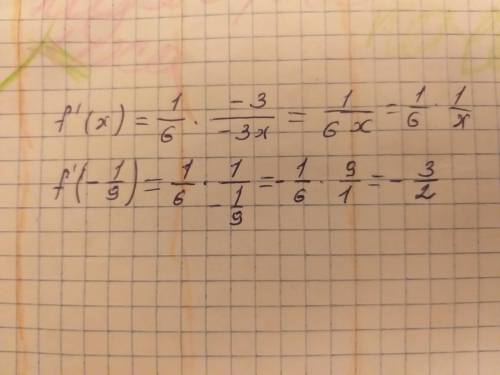 f'(x) = 1/6 · -3/-3x = 1/6x = 1/6 · 1/x
f'(-1/9) = 1/6 · 1/-1/9 = -1/6 · 9/1 = -3/2